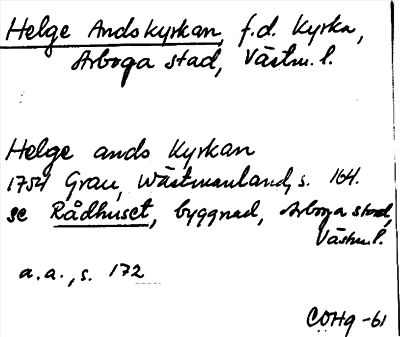 Helge Andskyrkan, f.d. Kyrka,
Arboga stad, Västm. l.
Helge ands Kyrkan
1754 Grau, Wästmanland, s. 164.
se Rådhuset, byggnad, Arboga stad,
Västm l.
a.a., s. 172
COHg -61